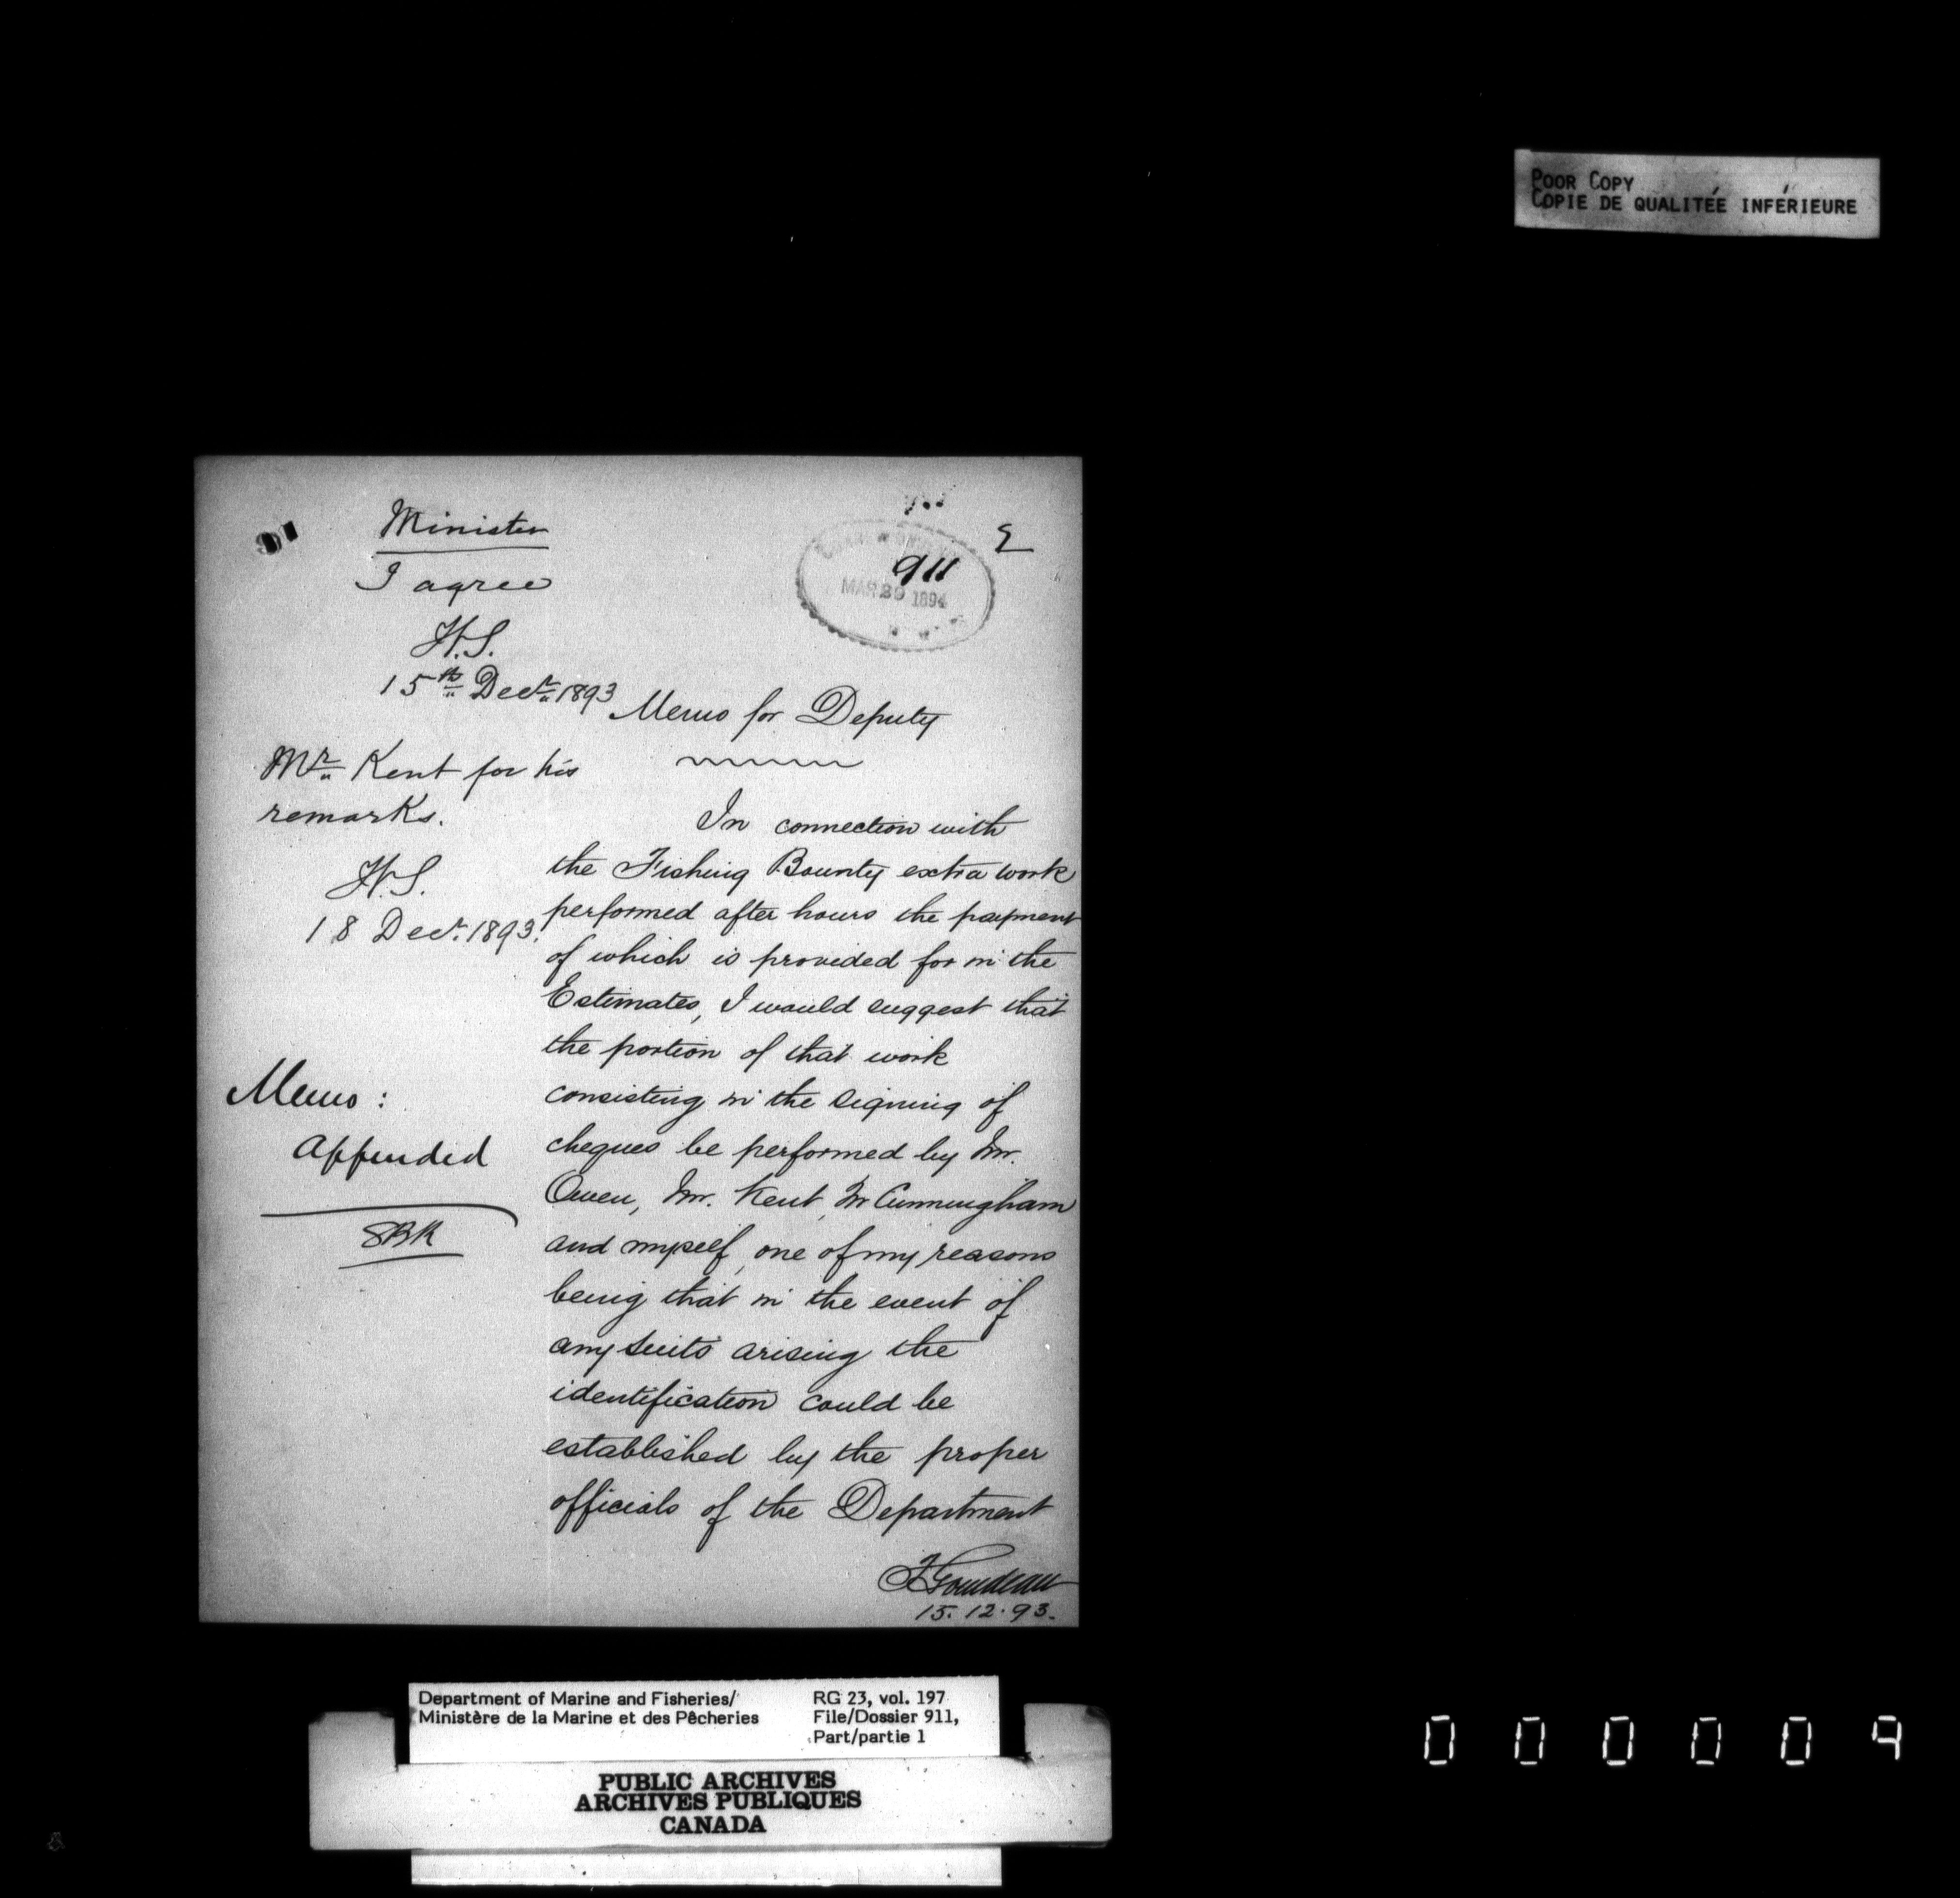 POOR COPY
COPIE DE QUALITÉE INFÉRIEURE
Minister
I agree
H.S.
15th Decr 1893
911
MAR 30 1894
Memo for Deputy
Mr Kent for his
remarks.
H.S.
18 Decr. 1893.
Memo:
Appended
SBK
In connection with
the Fishing Bounty extra work
performed after hours the payment
of which is provided for in the
Estimates, I would suggest that
the portion of that work
consisting in the signing of
cheques be performed by Mr.
Owen, Mr. Kent, Mr Cunningham
and myself, one of my reasons
being that in the event of
any suits arising the
identification could be
established by the proper
officials of the Department
F Gourdeau
15.12.93.
Department of Marine and Fisheries/
Ministère de la Marine et des Pêcheries
RG 23, vol. 197
File/Dossier 911,
Part/partie 1
PUBLIC ARCHIVES
ARCHIVES PUBLIQUES
CANADA
000009